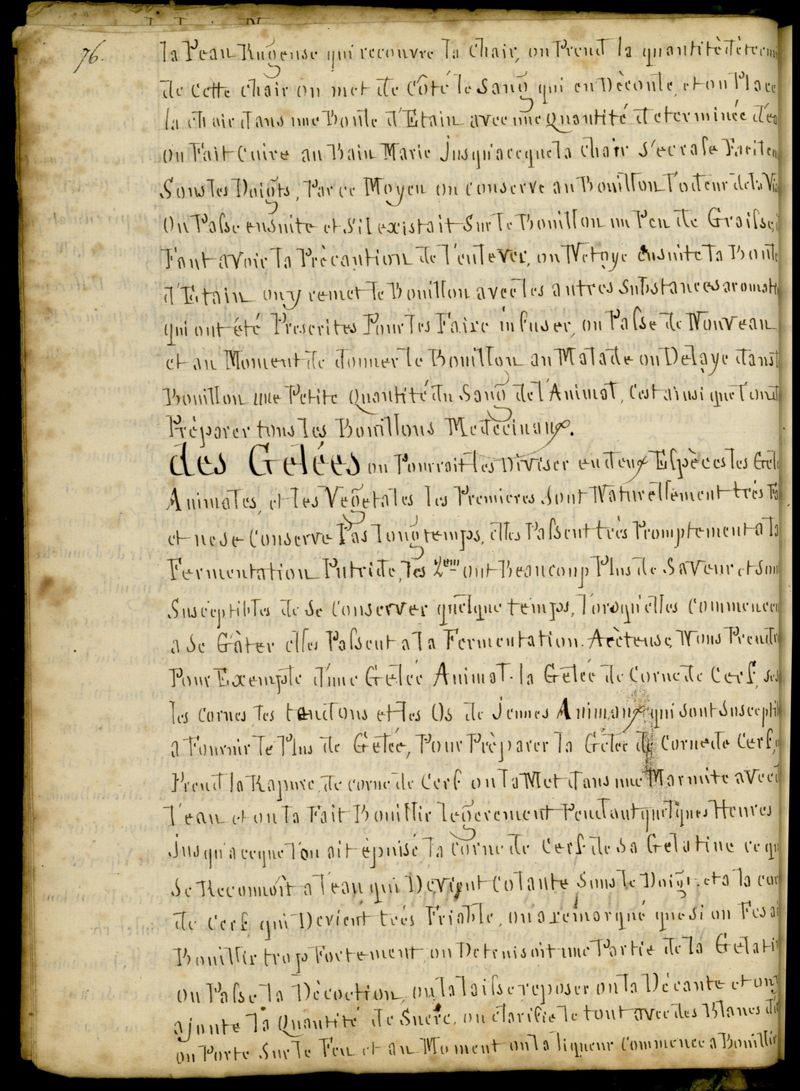 76.
la Peau Rugeuse qui recouvre la Chair, on Prend la quantité déterm
de Cette Chair on met de Côté le Sang qui en Découle, et on Place
la chair dans une Boule d'Etain avec une Quantité determinée d'ea
on Fait Cuire au Bain Marie Jusqu'aceque la Chair S'ecrase Facilem
Sous les Doigts, Par ce Moyen on Conserve au Bouillon l'odeur de la Vi
On Passe ensuite et s'il existait Sur le Bouillon un Peu de Graisse,
Faut avoir la Précaution de l'enlever, on Netoye Ensuite la Boule
d'Etain on y remet le Bouillon avec les autres Substances aromati
qui ont été Prescrites Pour les Faire infuser, on Passe de Nouveau
et au Moment de donner le Bouillon au Malade on Delaye dans l
Bouillon une Petite Quantité du Sang de l'Animal, C'est ainsi que l'on doit
Préparer tous les Bouillons Medecinaux.
des Gelées on Pourrait les Diviser en deux Espèces les Gelé
Animales, et les Vegetales les Premieres Sont Naturellement très Fa
et ne se Conserve Pas longtemps, elles Passent très Promptement a la
Fermentation Putride, les 2emes ont Beaucoup Plus de Saveur et son
Susceptibles de se Conserver quelque temps, lorsqu'elles Commencen
a se Gâter elles Passent a la Fermentation Acèteuse, Nous Prendr
Pour Exemple d'une Gelée Animal la Gelée de Corne de Cerf, ses
les Cornes les tendons et les Os de Jeunes Animaux qui sont Suscepti
a Fournir le Plus de Gelée, Pour Préparer la Gelée de Corne de Cerf, o
Prend la Rapure de corne de Cerf on la Met dans une Marmite avec d
l'eau et on la Fait Bouillir legerement Pendant quelques Heures
Jusqu'a ceque l'on ait épuisé la Corne de Cerf de Sa Gelatine ce qu
Se Reconnoît a l'eau qui Devient Colante Sous le Doigt, et a la cor
de Cerf qui Devient très Friable, on a remarqué que si on Fesai
Bouillir trop Fortement on Detruisoit une Partie de la Gelati
on Passe la Décoction, on la laisse reposer on la Décante et on y
ajoute la Quantité de Sucre, on clarifie le tout avec des Blancs d'
on Porte Sur le Feu et au Moment ou la liqueur Commence a Bouillir